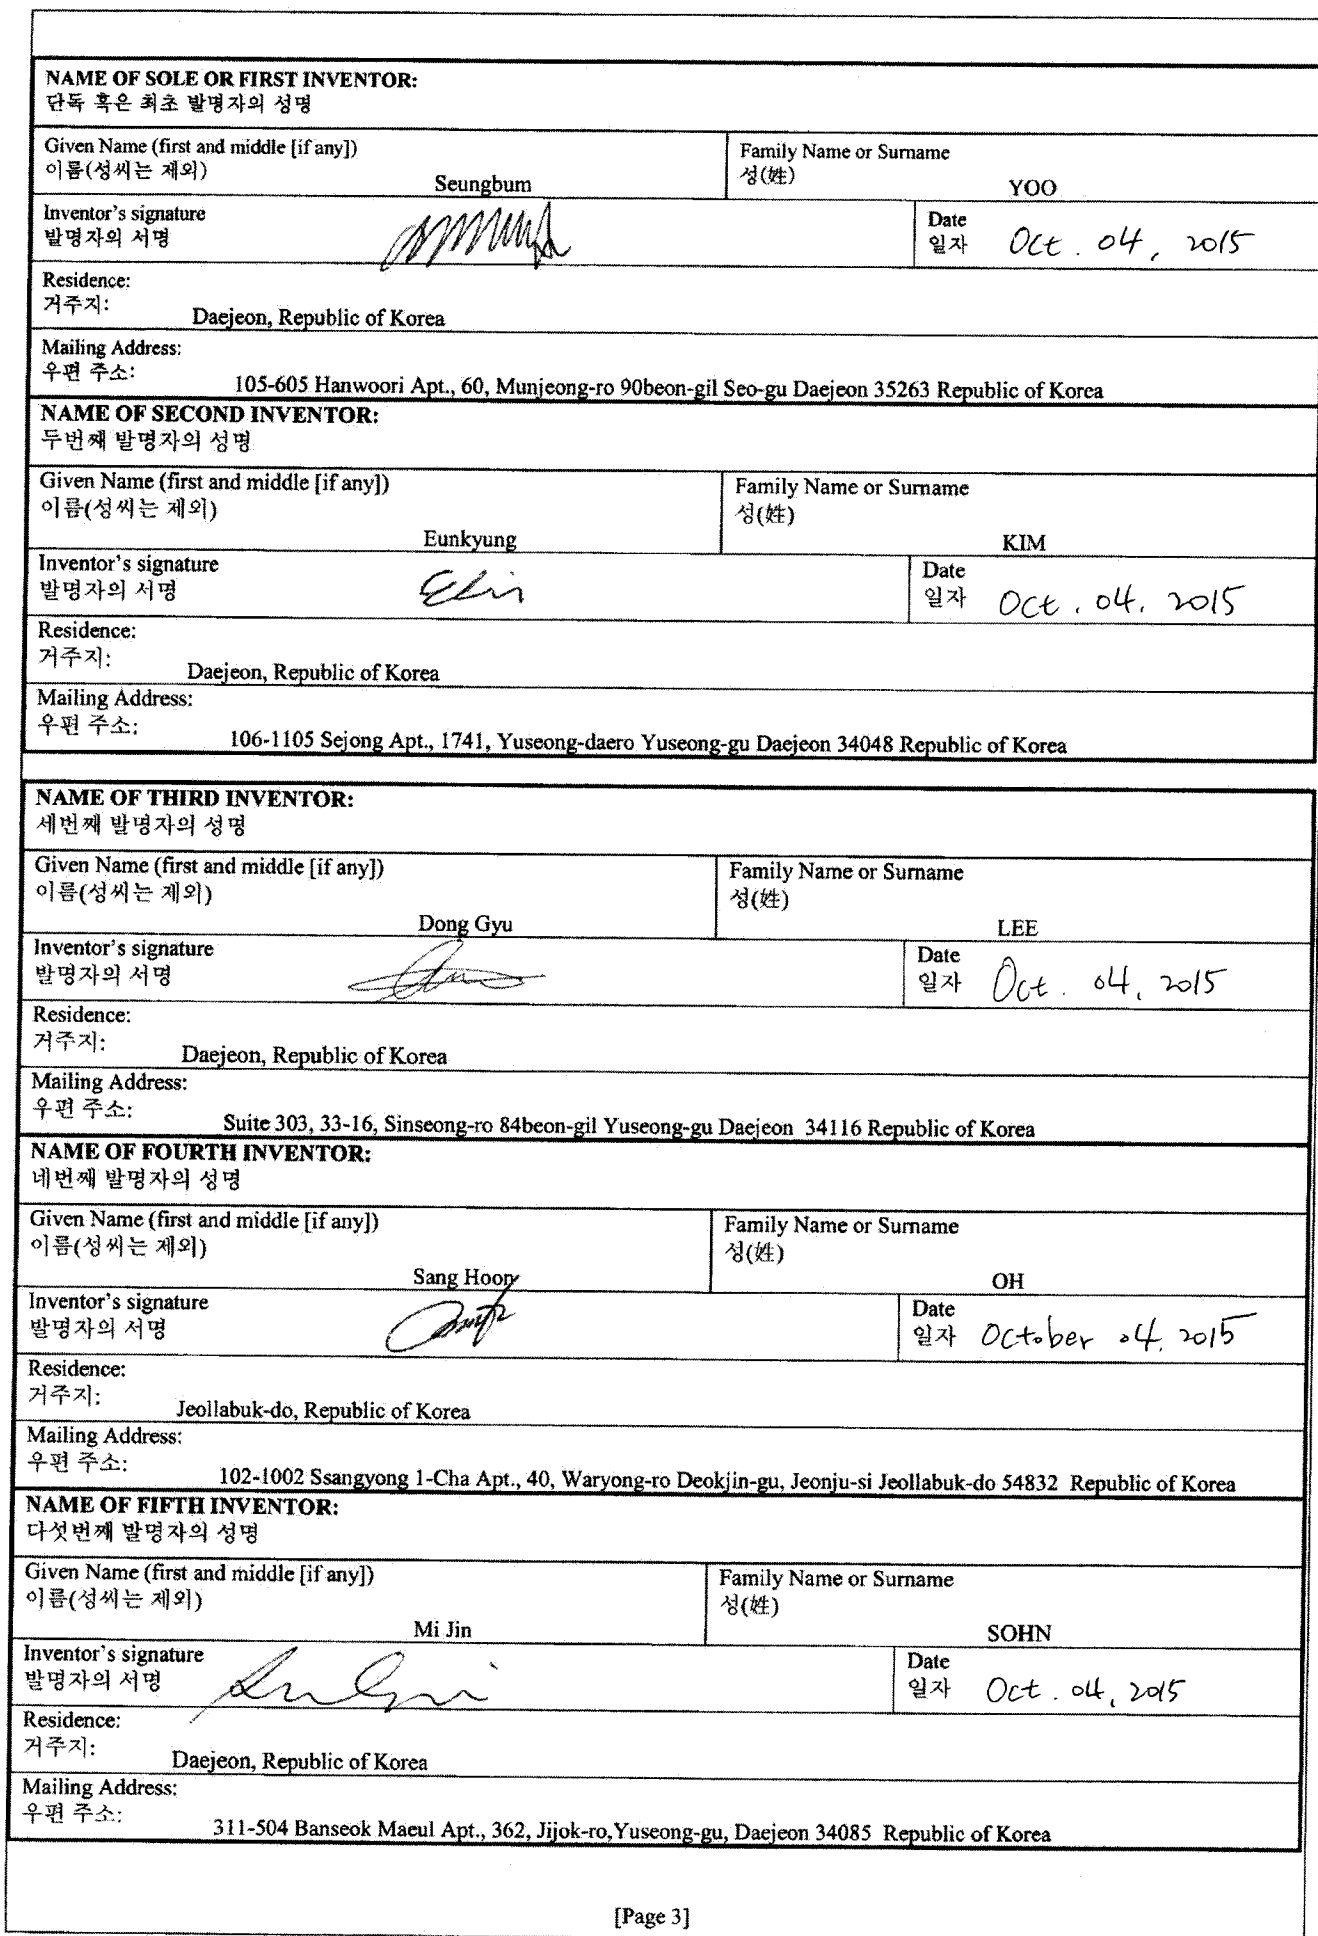 NAME OF SOLE OR FIRST INVENTOR:
단독 혹은 최초 발명자의 성명
Given Name (first and middle [if any])
이름(성씨는 제외)
Seungbum
Family Name or Surname
성(姓)
YOO
Inventor's signature
발명자의 서명
Date
일자 Oct. 04, 2015
Residence:
거주지:
Daejeon, Republic of Korea
Mailing Address:
우편 주소:
105-605 Hanwoori Apt., 60, Munjeong-ro 90beon-gil Seo-gu Daejeon 35263 Republic of Korea
NAME OF SECOND INVENTOR:
두번째 발명자의 성명
Given Name (first and middle [if any])
이름(성씨는 제외)
Eunkyung
Family Name or Surname
성(姓)
KIM
Inventor's signature
발명자의 서명
Date
일자 Oct. 04. 2015
Residence:
거주지:
Daejeon, Republic of Korea
Mailing Address:
우편 주소:
106-1105 Sejong Apt., 1741, Yuseong-daero Yuseong-gu Daejeon 34048 Republic of Korea
NAME OF THIRD INVENTOR:
세번째 발명자의 성명
Given Name (first and middle [if any])
이름(성씨는 제외)
Dong Gyu
Family Name or Surname
성(姓)
LEE
Inventor's signature
발명자의 서명
Date
일자 Oct. 04, 2015
Residence:
거주지:
Daejeon, Republic of Korea
Mailing Address:
우편 주소:
Suite 303, 33-16, Sinseong-ro 84beon-gil Yuseong-gu Daejeon 34116 Republic of Korea
NAME OF FOURTH INVENTOR:
네번째 발명자의 성명
Given Name (first and middle [if any])
이름(성씨는 제외)
Sang Hoon
Family Name or Surname
성(姓)
OH
Inventor's signature
발명자의 서명
Date
일자 October 04. 2015
Residence:
거주지:
Jeollabuk-do, Republic of Korea
Mailing Address:
우편 주소:
102-1002 Ssangyong 1-Cha Apt., 40, Waryong-ro Deokjin-gu, Jeonju-si Jeollabuk-do 54832 Republic of Korea
NAME OF FIFTH INVENTOR:
다섯번째 발명자의 성명
Given Name (first and middle [if any])
이름(성씨는 제외)
Mi Jin
Family Name or Surname
성(姓)
SOHN
Inventor's signature
발명자의 서명
Date
일자 Oct. 04, 2015
Residence:
거주지:
Daejeon, Republic of Korea
Mailing Address:
우편 주소:
311-504 Banseok Maeul Apt., 362, Jijok-ro,Yuseong-gu, Daejeon 34085 Republic of Korea
[Page 3]